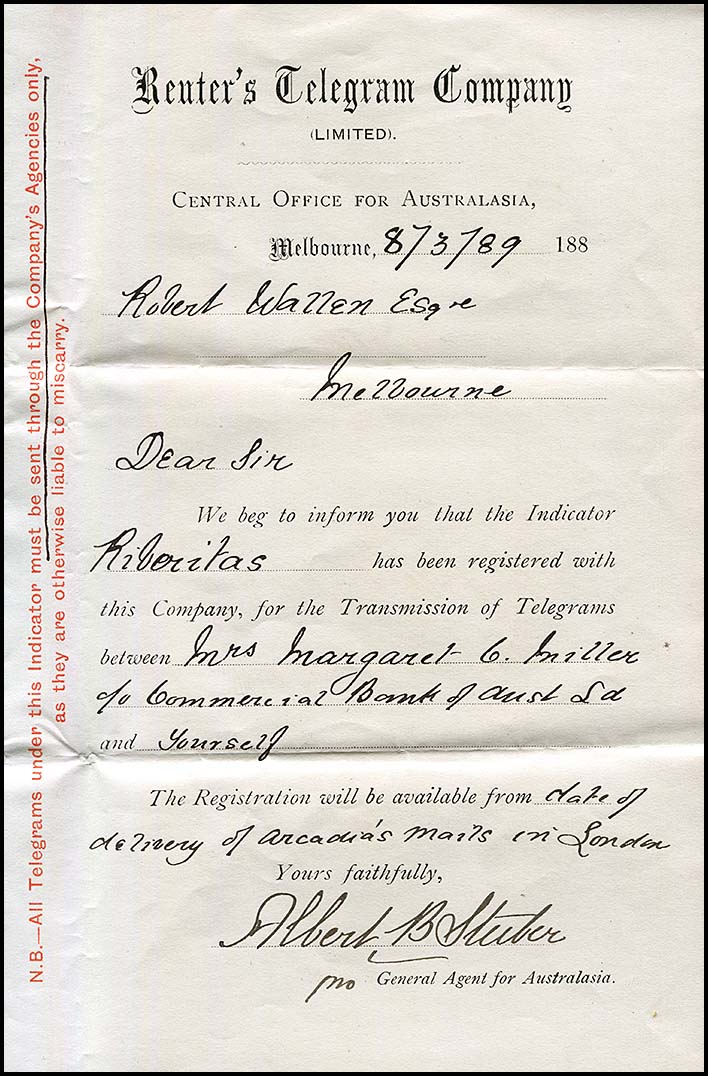 Reuter's Telegram Company
(LIMITED).
CENTRAL OFFICE FOR AUSTRALASIA,
Melbourne, 8/3/89 188
Robert Wallen Esqre
Melbourne
Dear Sir
We beg to inform you that the Indicator
Riberitas has been registered with
this Company, for the Transmission of Telegrams
between Mrs Margaret C. Miller
c/o Commercial Bank of Aust Ld
and Yourself
The Registration will be available from date of
delivery of Arcadia's mails in London
Yours faithfully,
Albert B Stuber
pro General Agent for Australasia.
N.B.—All Telegrams under this Indicator must be sent through the Company's Agencies only,
as they are otherwise liable to miscarry.